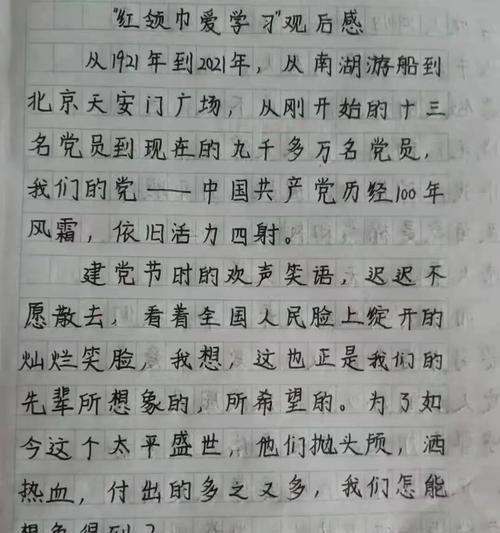 "红领巾爱学习"观后感
从1921年到2021年，从南湖游船到
北京天安门广场，从刚开始的十三
名党员到现在的九千多万名党员，
我们的党——中国共产党历经100年
风霜，依旧活力四射。
建党节时的欢声笑语，迟迟不
愿散去，看着全国人民脸上绽开的
灿烂笑脸，我想，这也正是我们的
先辈所想象的，所希望的。为了如
今这个太平盛世，他们抛头颅，洒
热血，付出的多之又多，我们怎能
想象得到？